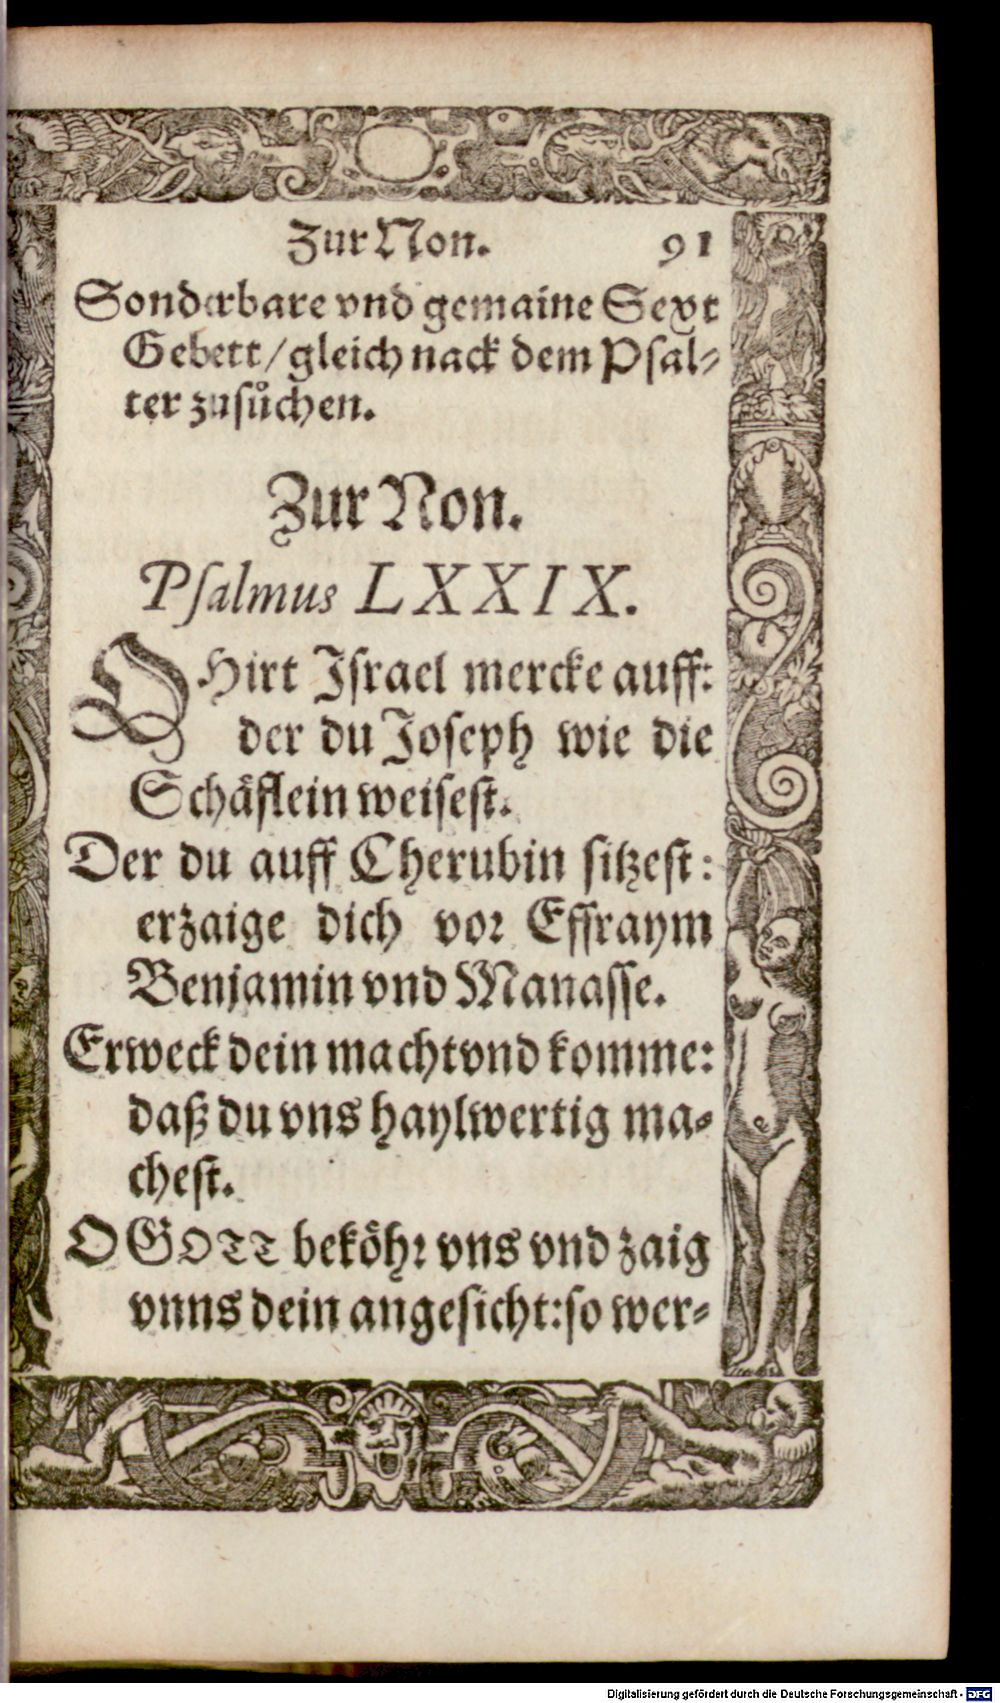 Zur Non. 91
Sonderbare vnd gemaine Sext
Gebett/gleich nack dem Psal⸗
ter zusůchen.
Zur Non.
Psalmus LXXIX.
O Hirt Israel mercke auff:
der du Joseph wie die
Schäflein weisest.
Der du auff Cherubin sitzest:
erzaige dich vor Effraym
Benjamin vnd Manasse.
Erweck dein macht vnd komme:
daß du vns haylwertig ma⸗
chest.
O GOTT beköhr vns vnd zaig
vnns dein angesicht: so wer⸗
Digitalisierung gefördert durch die Deutsche Forschungsgemeinschaft - DFG